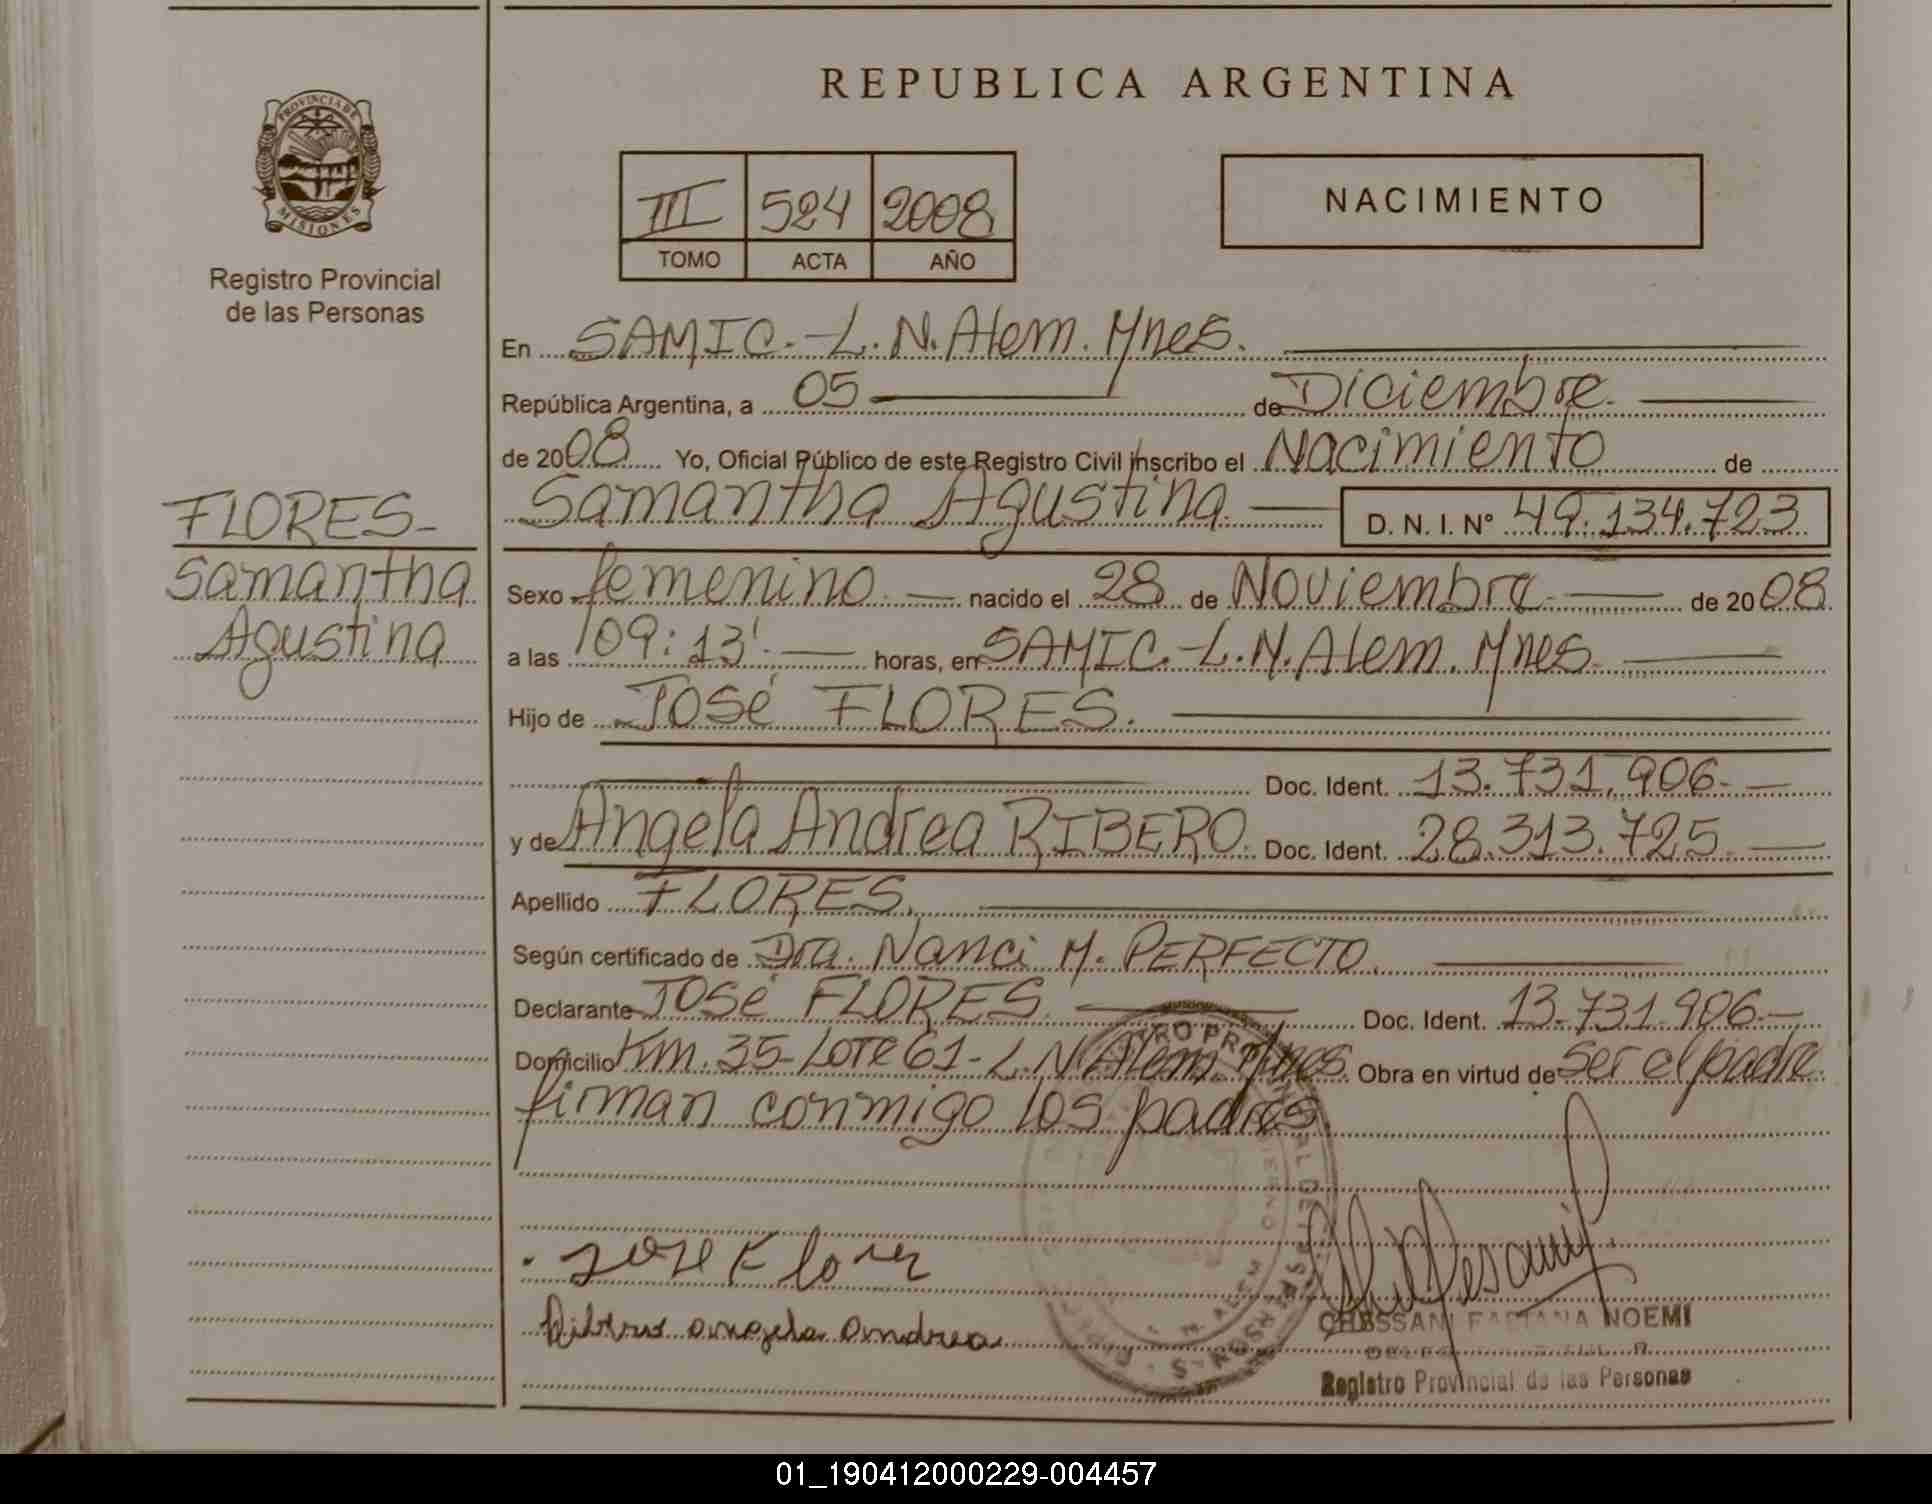 REPUBLICA ARGENTINA
PROVINCIA DE
MISIONES
Registro Provincial
de las Personas
III 524 2008
TOMO ACTA AÑO
NACIMIENTO
En SAMIC.-L.N.Alem.Mnes.
República Argentina, a 05 de Diciembre.
de 2008 Yo, Oficial Público de este Registro Civil inscribo el Nacimiento de
Samantha Agustina D.N.I. Nº 49.134.723
FLORES-
Samantha
Agustina
Sexo femenino. nacido el 28 de Noviembre de 2008
a las 09:13'. horas, en SAMIC.-L.N.Alem.Mnes.
Hijo de José FLORES.
Doc. Ident. 13.731.906.-
y de Angela Andrea RIBERO. Doc. Ident. 28.313.725.
Apellido FLORES.
Según certificado de Dra. Nanci M. PERFECTO.
Declarante José FLORES. Doc. Ident. 13.731.906-
Domicilio Km. 35-Lote 61-L.N Alem. Mnes. Obra en virtud de ser el padre.
firman conmigo los padres.
Jose Flores
angela andrea
NOEMI
Registro Provincial de las Personas
01_190412000229-004457